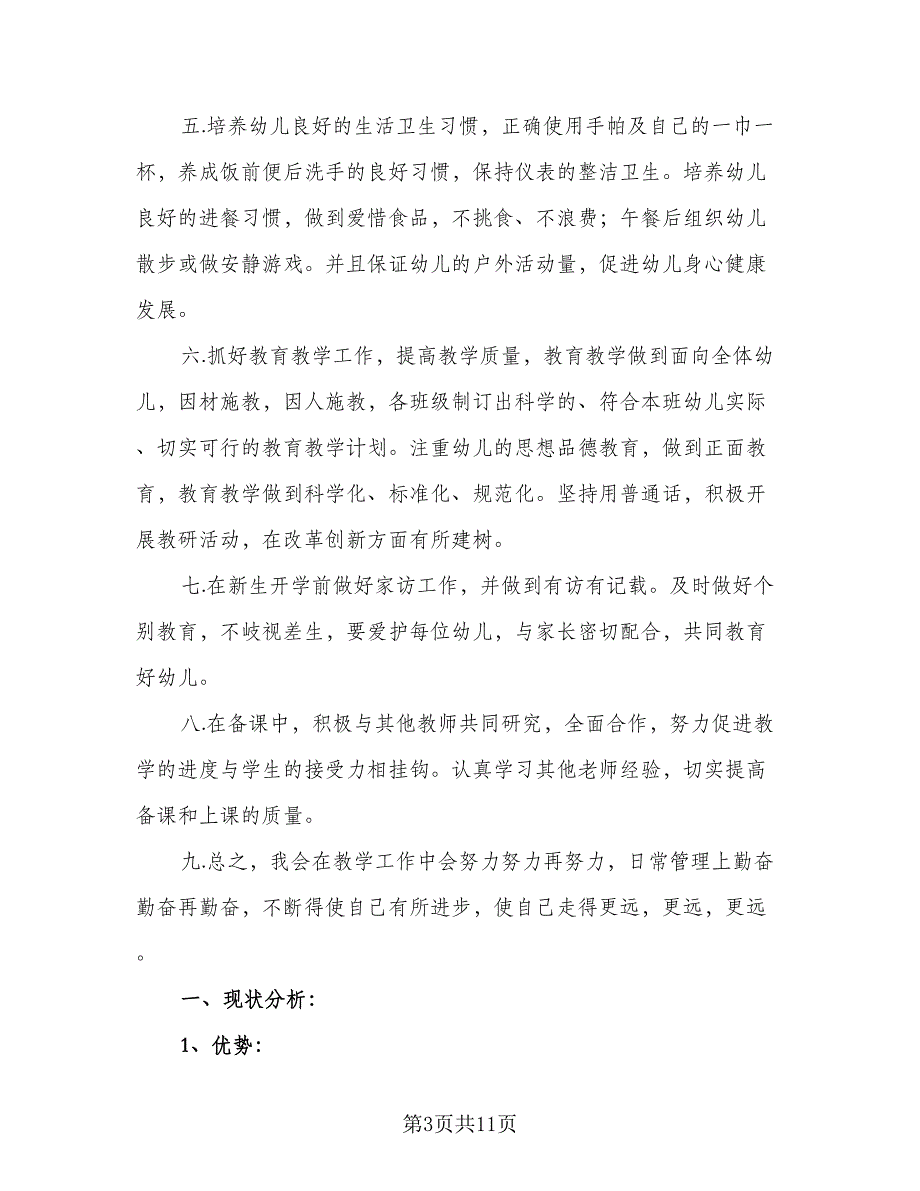 五.培养幼儿良好的生活卫生习惯，正确使用手帕及自己的一巾一
杯，养成饭前便后洗手的良好习惯，保持仪表的整洁卫生。培养幼儿
良好的进餐习惯，做到爱惜食品，不挑食、不浪费；午餐后组织幼儿
散步或做安静游戏。并且保证幼儿的户外活动量，促进幼儿身心健康
发展。
六.抓好教育教学工作，提高教学质量，教育教学做到面向全体幼
儿，因材施教，因人施教，各班级制订出科学的、符合本班幼儿实际
、切实可行的教育教学计划。注重幼儿的思想品德教育，做到正面教
育，教育教学做到科学化、标准化、规范化。坚持用普通话，积极开
展教研活动，在改革创新方面有所建树。
七.在新生开学前做好家访工作，并做到有访有记载。及时做好个
别教育，不歧视差生，要爱护每位幼儿，与家长密切配合，共同教育
好幼儿。
八.在备课中，积极与其他教师共同研究，全面合作，努力促进教
学的进度与学生的接受力相挂钩。认真学习其他老师经验，切实提高
备课和上课的质量。
九.总之，我会在教学工作中会努力努力再努力，日常管理上勤奋
勤奋再勤奋，不断得使自己有所进步，使自己走得更远，更远，更远
。
一、现状分析：
1、优势：
第3页共11页